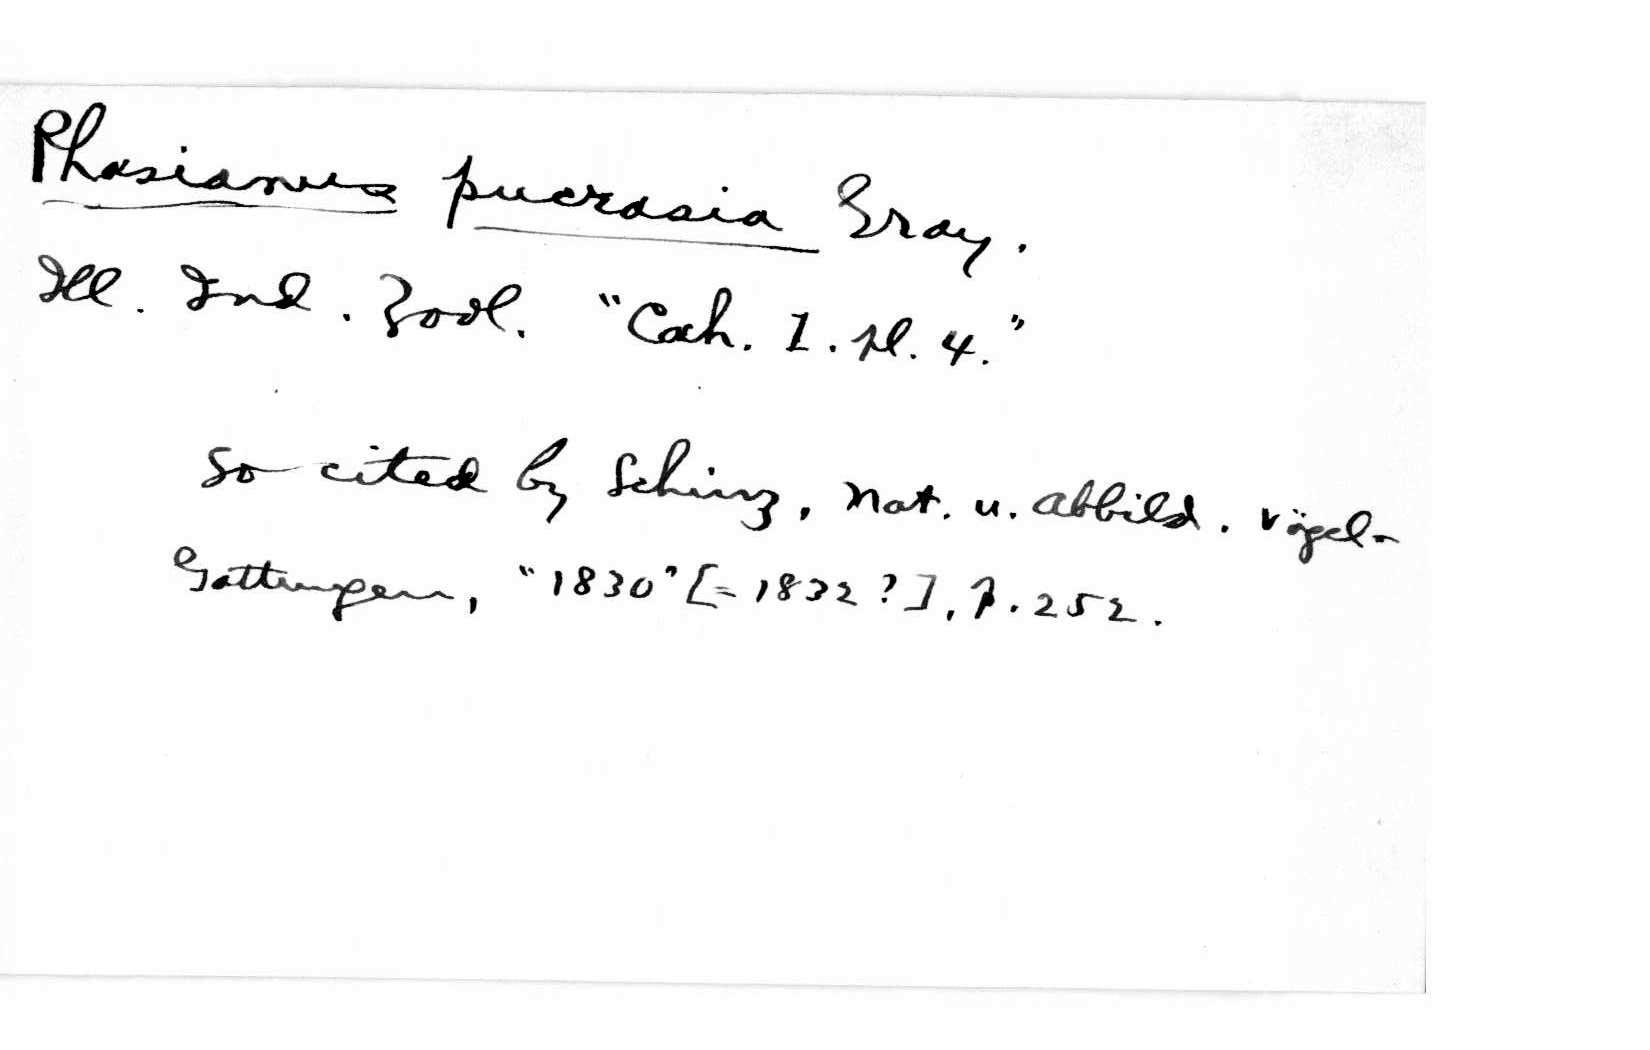 Phasianus pucrasia Gray.
Ill. Ind. Zool. "Cah. 1. pl. 4."
So cited by Schinz, Nat. u. Abbild. Vögel-
Gattungen, "1830" [=1832?], p. 252.